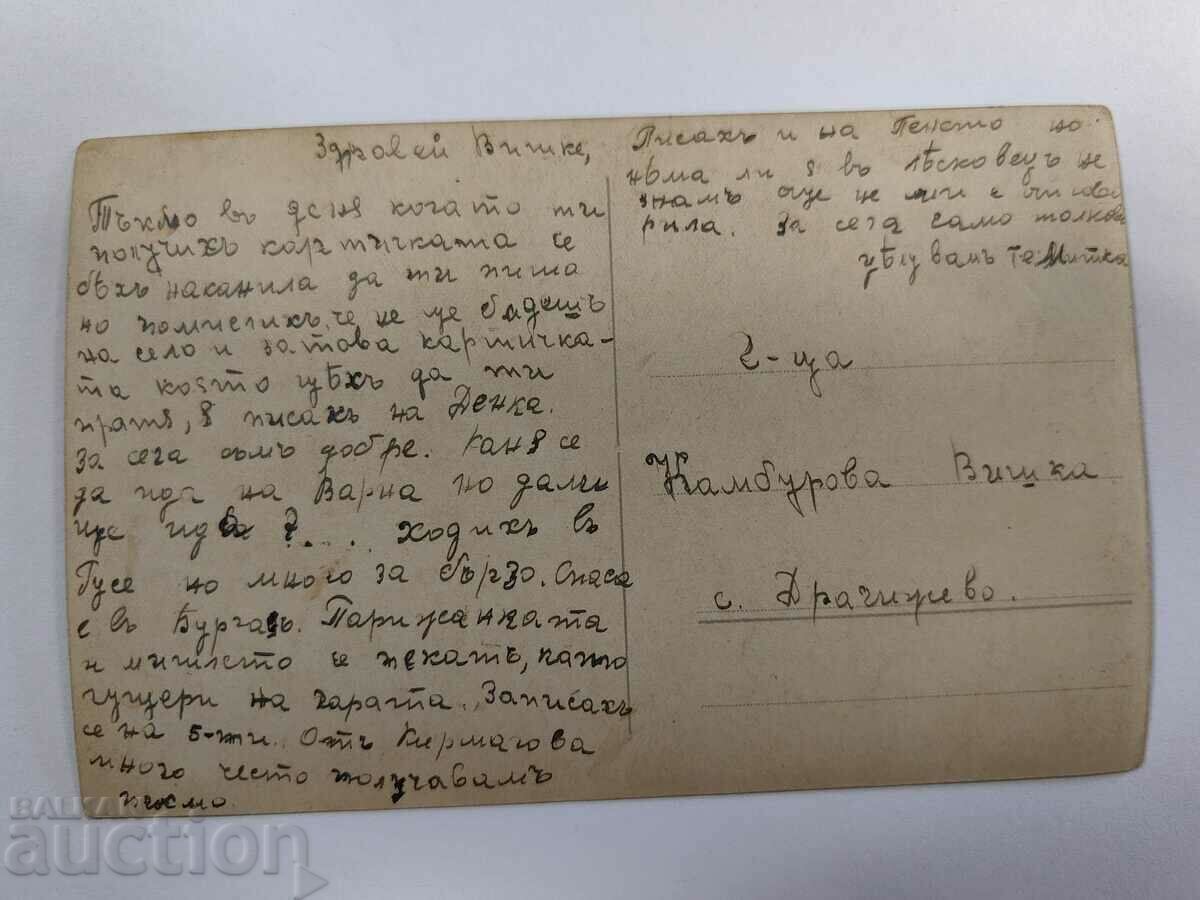 Здравей Вишке,
Тъкмо въ деня когато ти
получихъ картичката се
бѣхъ наканила да ти пиша
но помислихъ, че не ще бѫдешъ
на село и затова картичка-
та която щѣхъ да ти
пратя, я писахъ на Денка.
За сега съмъ добре. Каня се
да ида на Варна но дали
ще ида ?.... ходихъ въ
Русе но много за бързо. Спаса
е въ Бургасъ. Парижанката
и се пекатъ, като
гущери на харата. Записахъ
се на 5-ти. Отъ Кирмагова
много често получавамъ
писмо.
Писахъ и на Пенето но
нѣма ли я въ Лѣсковецъ не
знамъ още не ми е отгово
рила. За сега само толкова
цѣлувамъ те Митка
Г-ца
Камбурова Вишка
с. Драгижево.
БАЛКАН
auction